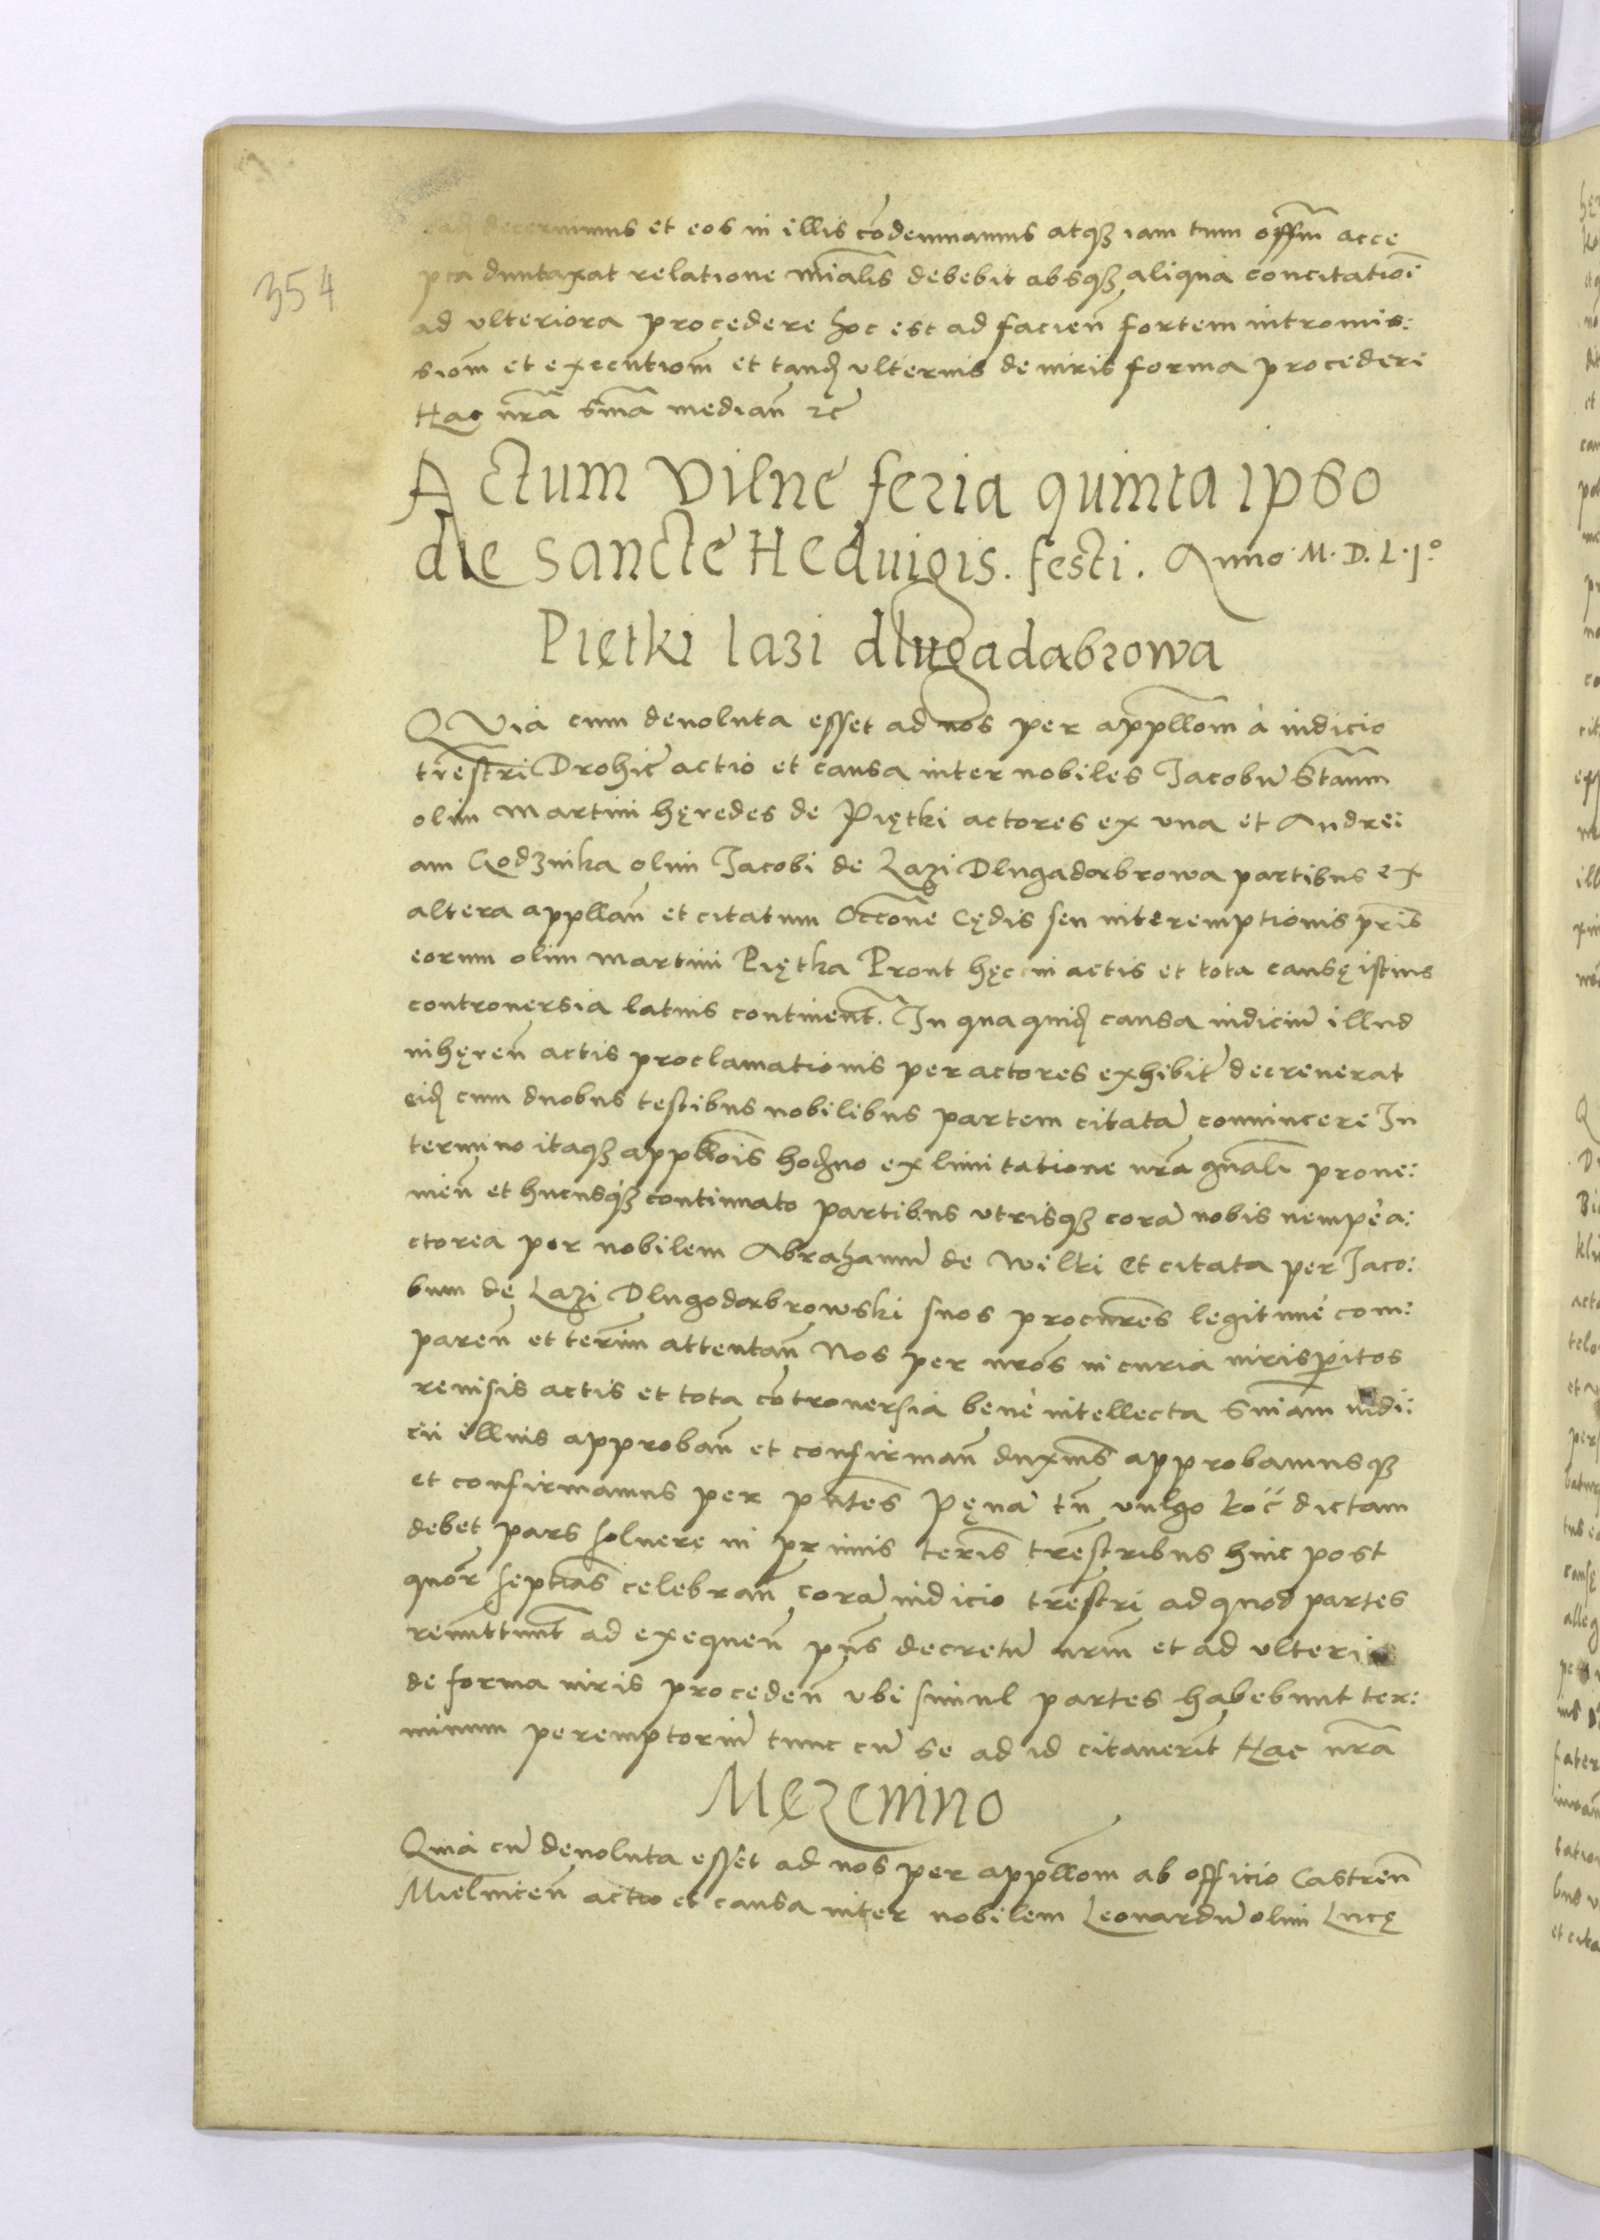 354
decernimus et eos in illis cõdemnamus atqz iam tum offm̃ acce
pta duntaxat relatione mĩalis debebit absqz aliqua concitatioĩ
ad vlteriora procedere hoc est ad facien̄ fortem intromis:
siom̃ et executiom̃ et tandẽ vlterius de iuris forma procedere
Hac nrã sniã median̄ etc̃
Actum Vilne feria quinta ipso
die Sancte Heduigis. festi. Anno M. D. L. j.º
Piętki lazi dlugadabrowa
QVia cum deuoluta esset ad nos per appllom̃ à iudicio
trẽstri Drohic̃ actio et causa inter nobiles Jacobũ Stanm̃
olim Martini hęredes de Piętki actores ex vna et Andre:
am Godznika olim Jacobi de Lazi Dlugadabrowa partibus ex
altera appllan̄ et citatum Occoñe cędis seu interemptionis pr̃is
eorum olim Martini Piętka Pront hęc in actis et tota causę istius
controuersia latius continent̃. In qua quidẽ causa iudiciũ illud
inhęren̄ actis proclamationis per actores exhibit̃ decreuerat
eidẽ cum duobus testibus nobilibus partem citatã conuincere In
termino itaqz appllõis hodno ex limitatione nrã gñali proue:
nien̄ et hucusqz continuato partibus vtrisqz corã nobis nempe a:
ctorea per nobilem Abrahamũ de Wilki et citata per Jaco:
bum de Lazi Dlugodabrowski suos procur̃es legitime com:
paren̄ et term̃ attentan̄ Nos per nrõs in curia iurisperitos
reuisis actis et tota cõtrouersia bene intellecta Sniãm iudi:
cii illius approban̄ et confirman̄ duxim̃s approbamusqz
et confirmamus per pñtes Pęnã tñ vulgo Roč dictam
debet pars soluere in primis term̃is trẽstribus hinc post
quor̃ septiãs celebran̄ corã iudicio trẽstri ad quod partes
remittunt̃ ad exequen̄ pñs decretũ nrm̃ et ad vlteri
de forma iuris proceden̄ vbi simul partes habebunt ter:
minum peremptoriũ tunc cũ se ad id citauerĩt Hac nrã
Męzenino
Quia cũ deuoluta esset ad nos per appllom̃ ab officio Castren̄
Mielnicen̄ actio et causa inter nobilem Leonardũ olim Lucę